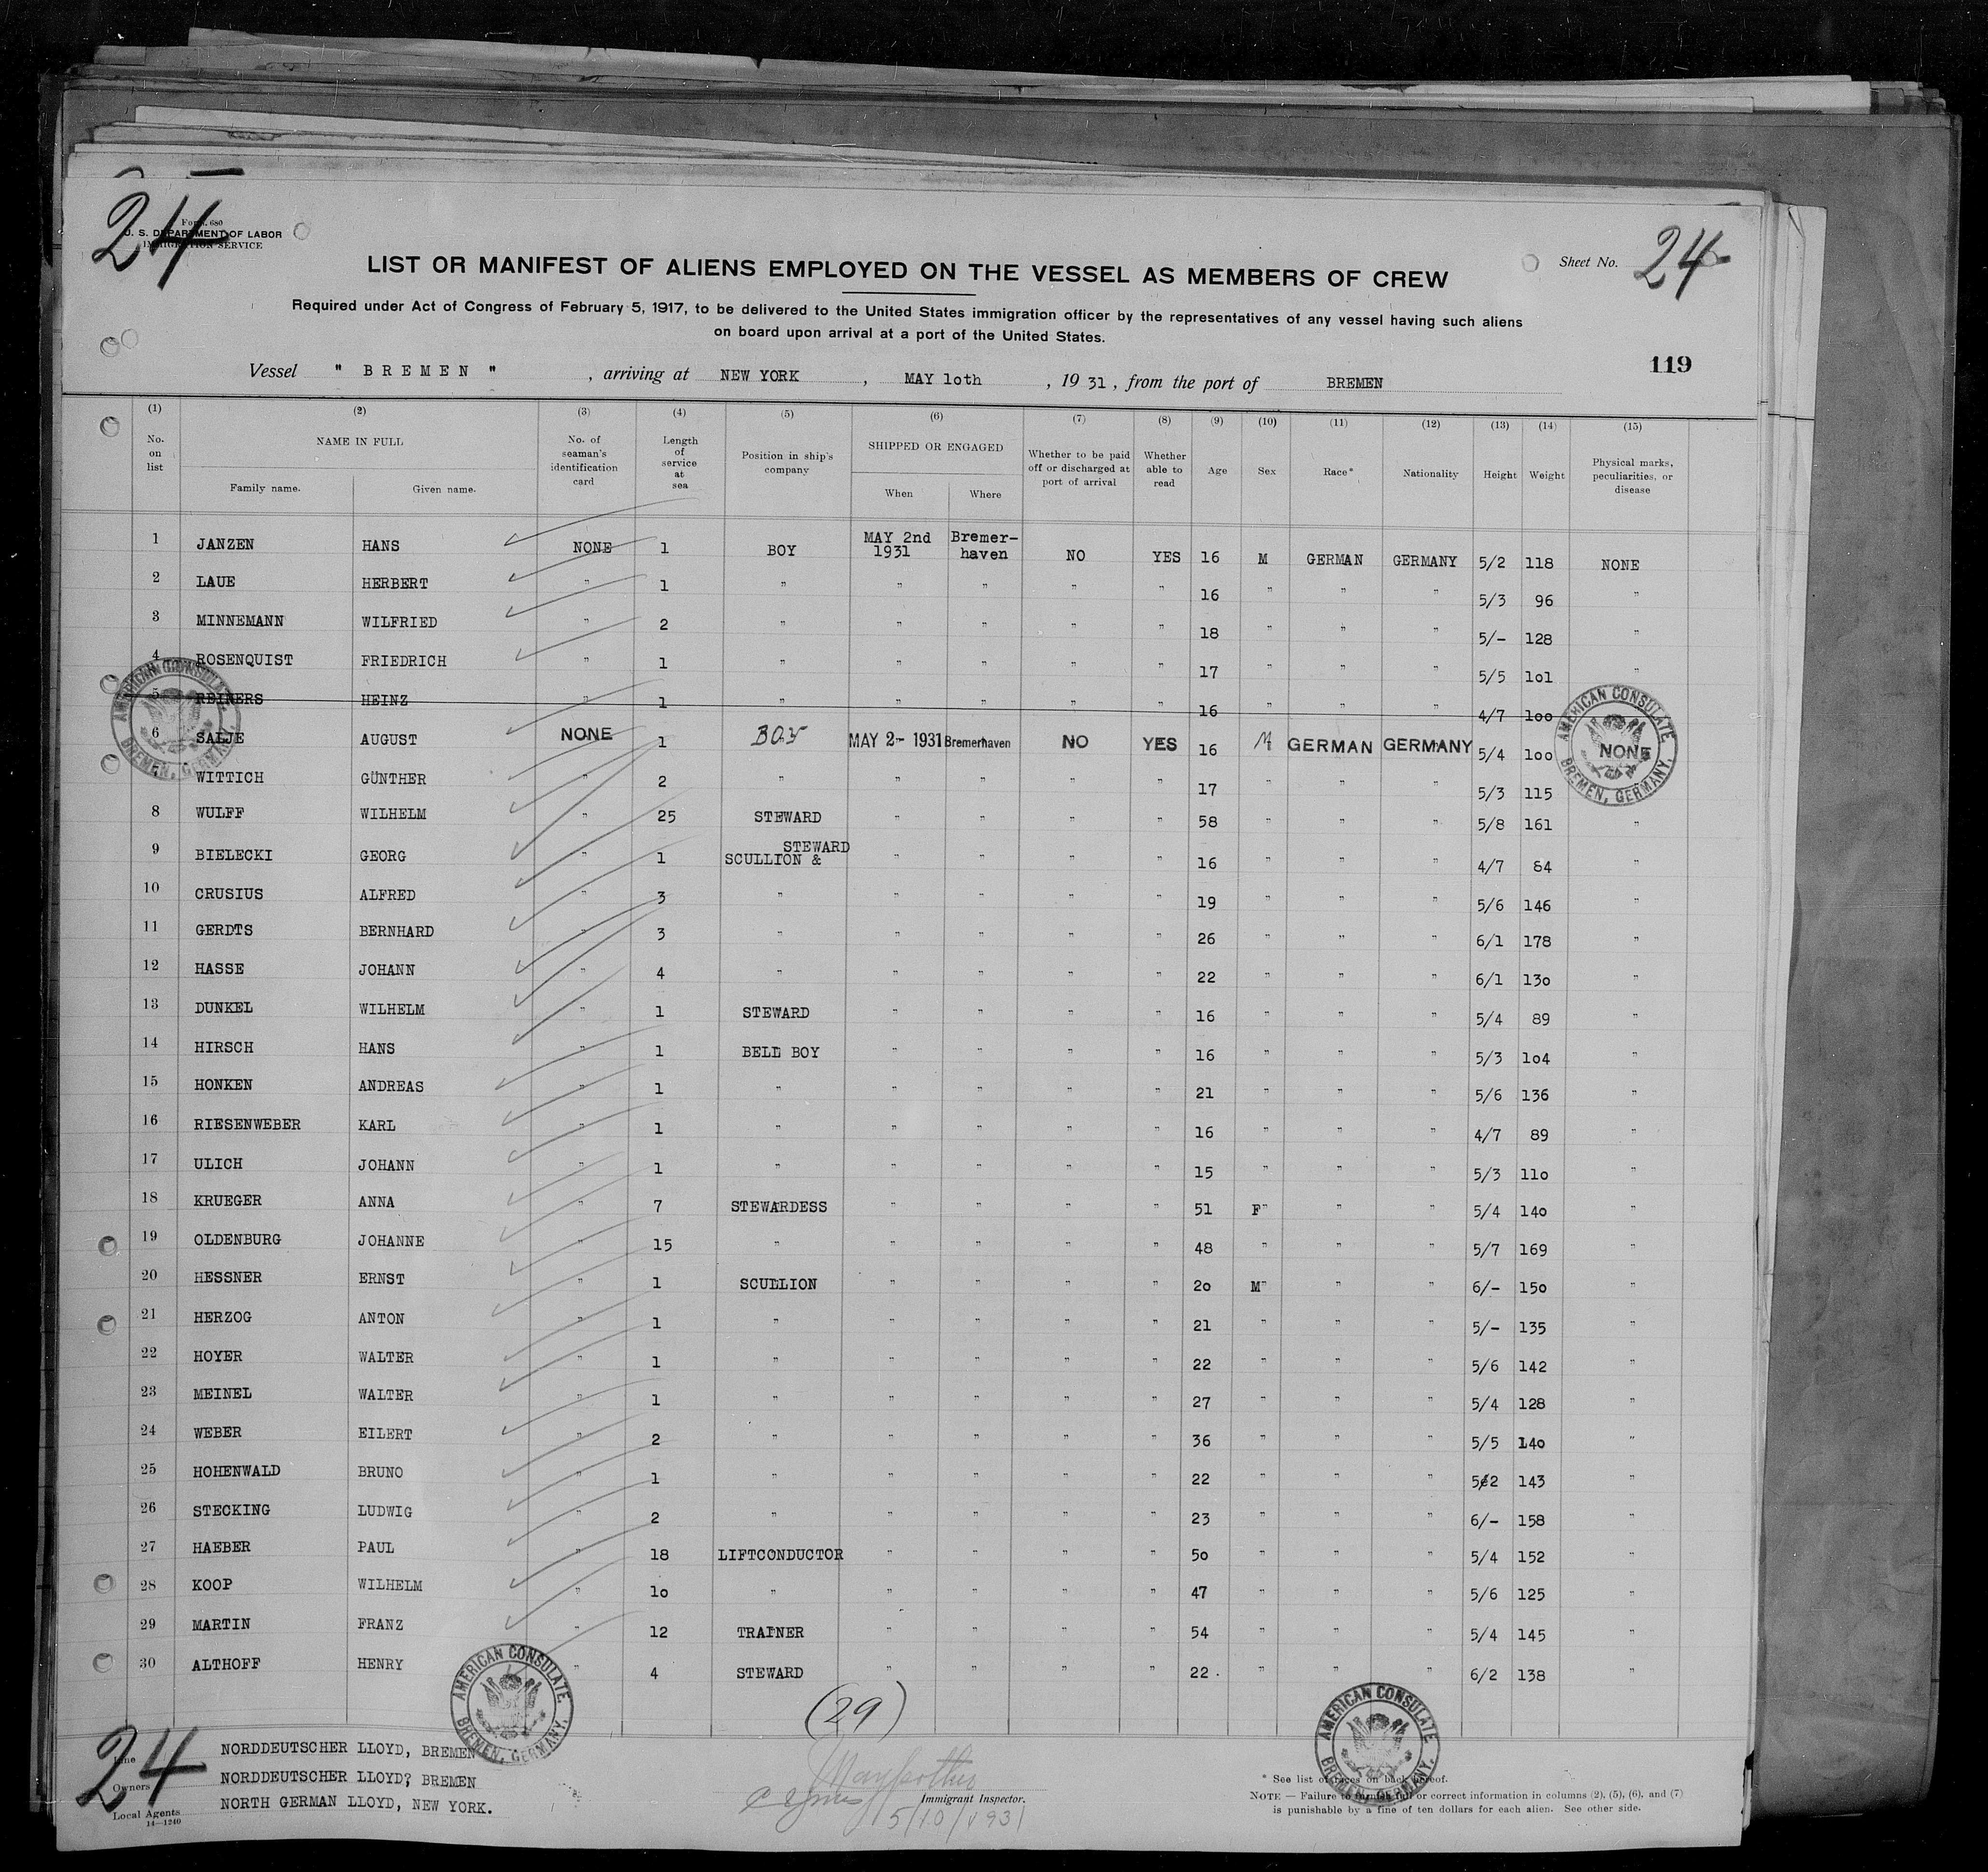 24
Form 680
U. S. DEPARTMENT OF LABOR
IMMIGRATION SERVICE
Sheet No. 24
LIST OR MANIFEST OF ALIENS EMPLOYED ON THE VESSEL AS MEMBERS OF CREW
Required under Act of Congress of February 5, 1917, to be delivered to the United States immigration officer by the representatives of any vessel having such aliens
on board upon arrival at a port of the United States.
119
Vessel " BREMEN " , arriving at NEW YORK , MAY 1oth , 19 31 , from the port of BREMEN
(1) (2) (3) (4) (5) (6) (7) (8) (9) (10) (11) (12) (13) (14) (15)
No. on list NAME IN FULL Family name. Given name. No. of seaman's identification card Length of service at sea Position in ship's company SHIPPED OR ENGAGED When Where Whether to be paid off or discharged at port of arrival Whether able to read Age Sex Race* Nationality Height Weight Physical marks, peculiarities, or disease
1 JANZEN HANS NONE 1 BOY MAY 2nd 1931 Bremer-haven NO YES 16 M GERMAN GERMANY 5/2 118 NONE
2 LAUE HERBERT " 1 " " " " " 16 " " " 5/3 96 "
3 MINNEMANN WILFRIED " 2 " " " " " 18 " " " 5/- 128 "
4 ROSENQUIST FRIEDRICH " 1 " " " " " 17 " " " 5/5 1o1 "
5 REINERS HEINZ " 1 " " " " " 16 " " " 4/7 1oo
6 SALJE AUGUST NONE 1 BOY MAY 2- 1931 Bremerhaven NO YES 16 M GERMAN GERMANY 5/4 1oo NONE
7 WITTICH GÜNTHER 2 " " " " " 17 " " " 5/3 115
8 WULFF WILHELM " 25 STEWARD " " " " 58 " " " 5/8 161 "
9 BIELECKI GEORG " 1 SCULLION & STEWARD " " " " 16 " " " 4/7 84 "
10 CRUSIUS ALFRED " 3 " " " " " 19 " " " 5/6 146 "
11 GERDTS BERNHARD " 3 " " " " " 26 " " " 6/1 178 "
12 HASSE JOHANN " 4 " " " " " 22 " " " 6/1 13o "
13 DUNKEL WILHELM " 1 STEWARD " " " " 16 " " " 5/4 89 "
14 HIRSCH HANS 1 BELL BOY " " " " 16 " " " 5/3 1o4 "
15 HONKEN ANDREAS " 1 " " " " " 21 " " " 5/6 136 "
16 RIESENWEBER KARL " 1 " " " " " 16 " " " 4/7 89 "
17 ULICH JOHANN " 1 " " " " " 15 " " " 5/3 11o "
18 KRUEGER ANNA " 7 STEWARDESS " " " " 51 F" " " 5/4 14o "
19 OLDENBURG JOHANNE " 15 " " " " " 48 " " " 5/7 169 "
20 HESSNER ERNST " 1 SCULLION " " " " 2o M" " " 6/- 15o "
21 HERZOG ANTON " 1 " " " " " 21 " " " 5/- 135 "
22 HOYER WALTER " 1 " " " " " 22 " " " 5/6 142 "
23 MEINEL WALTER " 1 " " " " " 27 " " " 5/4 128 "
24 WEBER EILERT " 2 " " " " " 36 " " " 5/5 14o "
25 HOHENWALD BRUNO " 1 " " " " " 22 " " " 5/2 143 "
26 STECKING LUDWIG " 2 " " " " " 23 " " " 6/- 158 "
27 HAEBER PAUL " 18 LIFTCONDUCTOR " " " " 5o " " " 5/4 152 "
28 KOOP WILHELM " 1o " " " " " 47 " " " 5/6 125 "
29 MARTIN FRANZ " 12 TRAINER " " " " 54 " " " 5/4 145 "
30 ALTHOFF HENRY " 4 STEWARD " " " " 22 . " " " 6/2 138 "
AMERICAN CONSULATE, BREMEN, GERMANY.
AMERICAN CONSULATE, BREMEN, GERMANY.
AMERICAN CONSULATE, BREMEN, GERMANY.
AMERICAN CONSULATE, BREMEN, GERMANY.
(29)
24
Line NORDDEUTSCHER LLOYD, BREMEN
Owners NORDDEUTSCHER LLOYD? BREMEN
Local Agents NORTH GERMAN LLOYD, NEW YORK.
14—1240
Immigrant Inspector.
5/10/1931
* See list of races on back hereof.
NOTE — Failure to furnish full or correct information in columns (2), (5), (6), and (7)
is punishable by a fine of ten dollars for each alien. See other side.